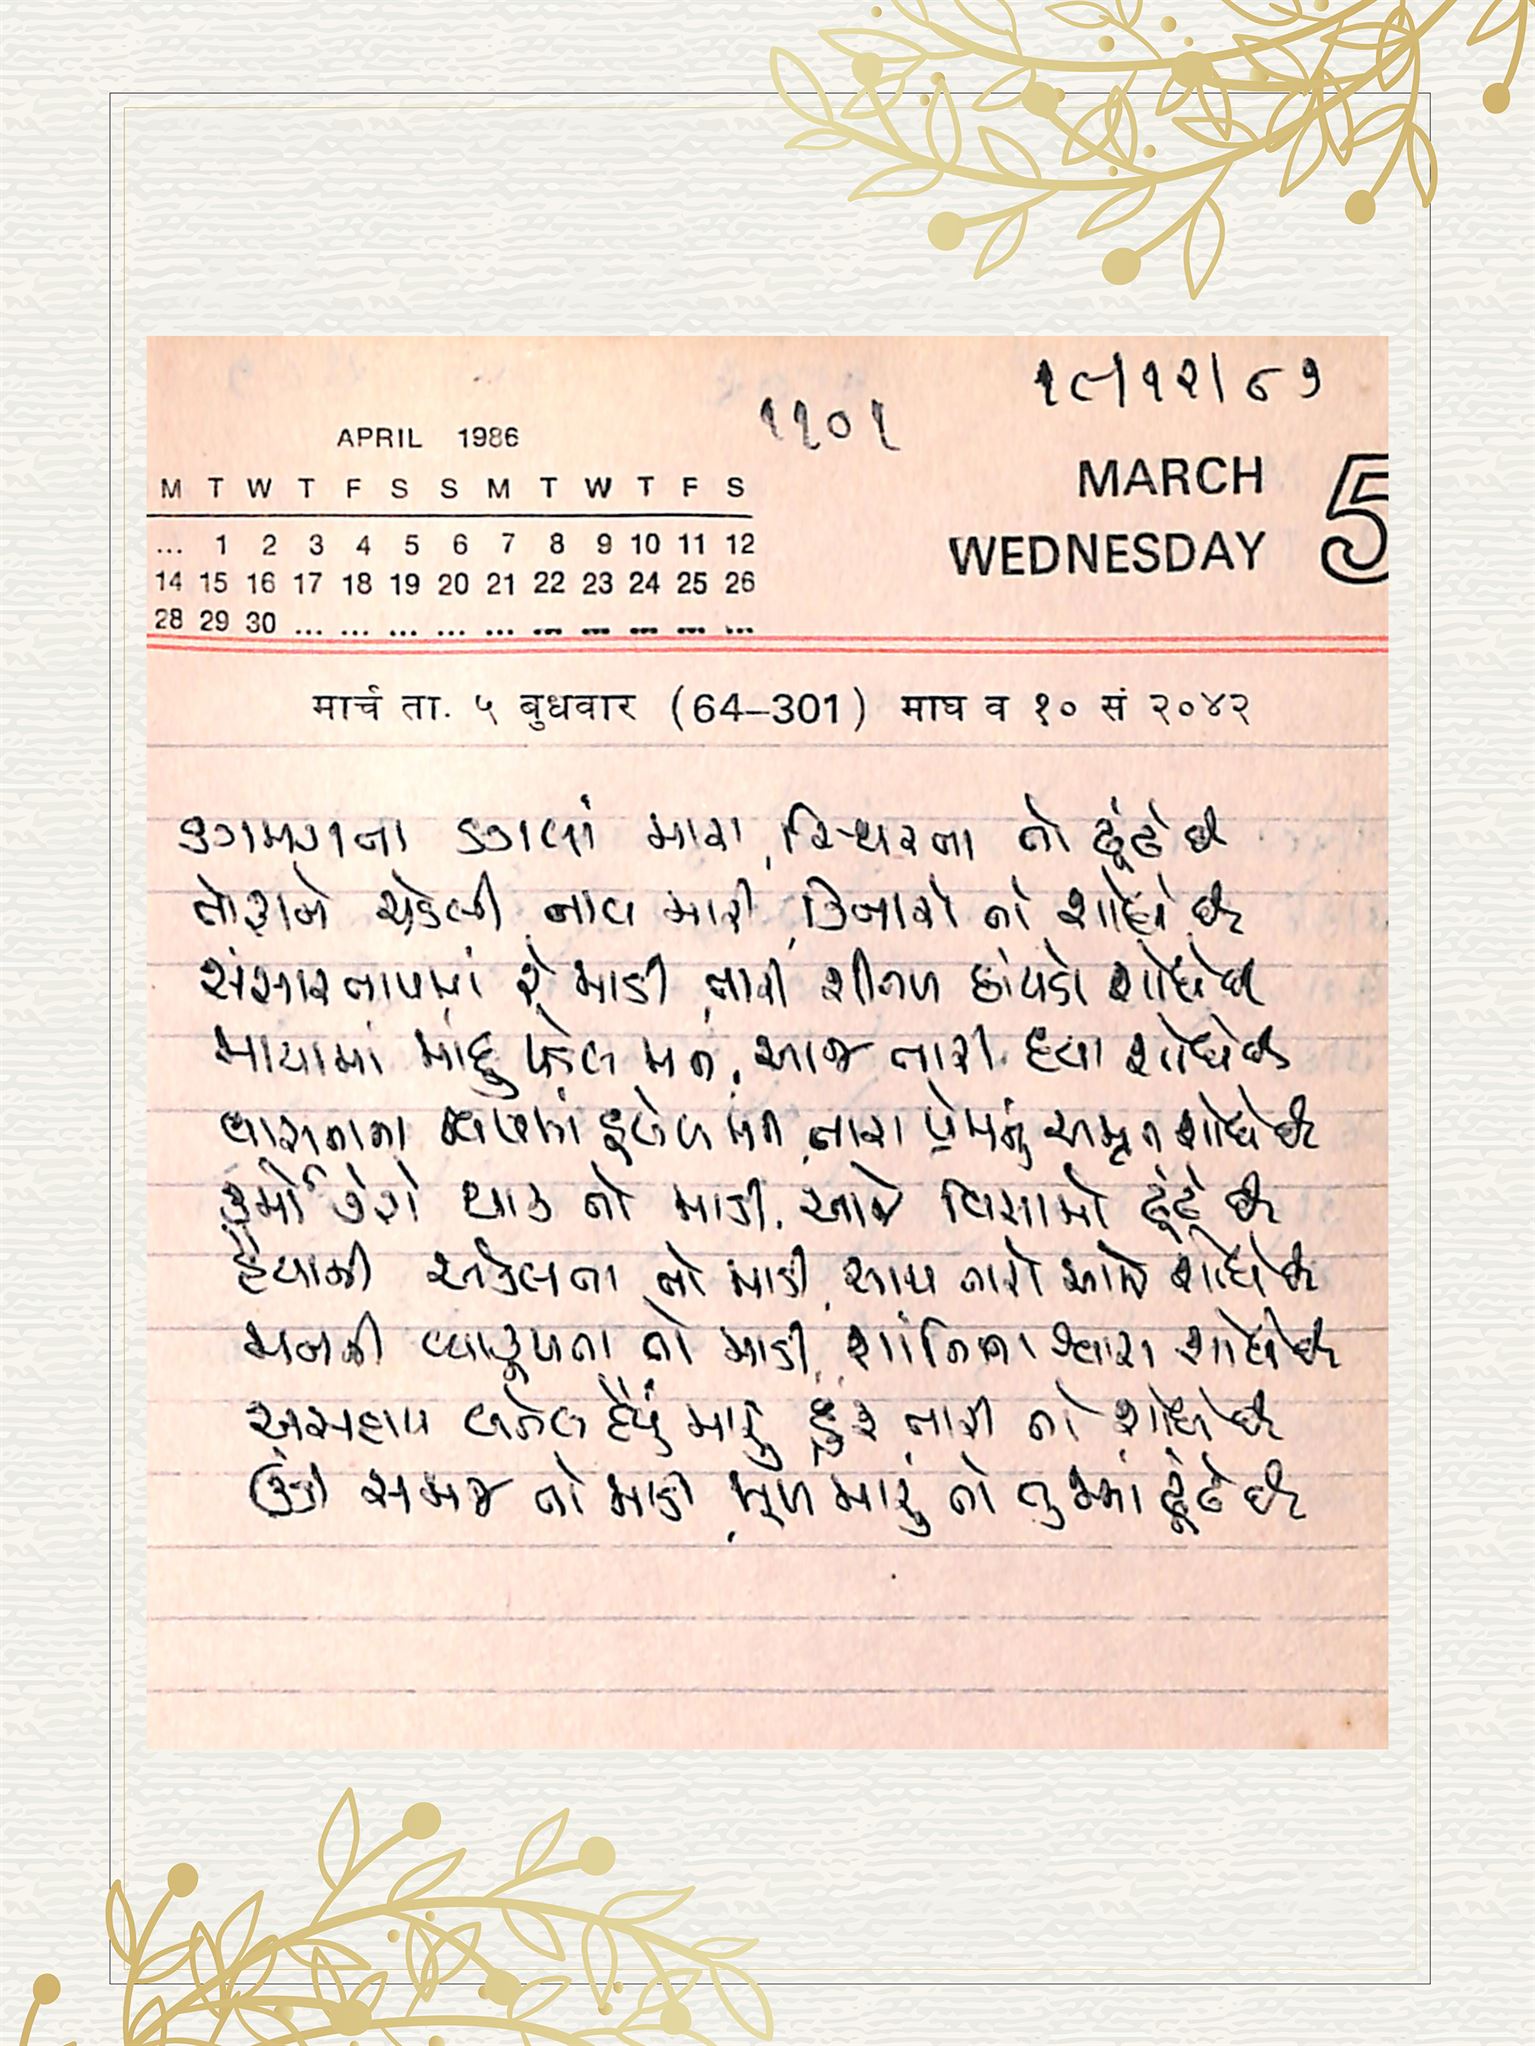 ૧૮/૧૨/૮૭
૧૧૦૧
APRIL 1986
MARCH 5
WEDNESDAY
M T W T F S S M T W T F S
... 1 2 3 4 5 6 7 8 9 10 11 12
14 15 16 17 18 19 20 21 22 23 24 25 26
28 29 30 ... ... ... ... ... ... ... ... ... ...
मार्च ता. ५ बुधवार (64–301) माघ व १० सं २०४२
ડગમગતા ડગલાં મારા, સ્થિરતા તો ઢૂંઢે છે
તોફાને ચડેલી નાવ મારી, કિનારો તો શોધે છે
સંસાર તાપમાં રે માડી, તારી શીતળ છાંયડી શોધે છે
માયામાં પડેલ મન, આજ તારી દયા શોધે છે
વાસનાના મન, તારા પ્રેમનું અમૃત શોધે છે
થાક તો માડી, આજે વિસામો ઢૂંઢે છે
હૈયાની એકલતા તો માડી, સાથ તારો આજે શોધે છે
મનની વ્યાકુળતા તો માડી, શાંતિના શ્વાસ શોધે છે
અસહાય બનેલ હૈયું મારું, હૂંફ તારી તો શોધે છે
ઊંડી સમજ તો માડી, મૂળ મારું તો તુજમાં ઢૂંઢે છે